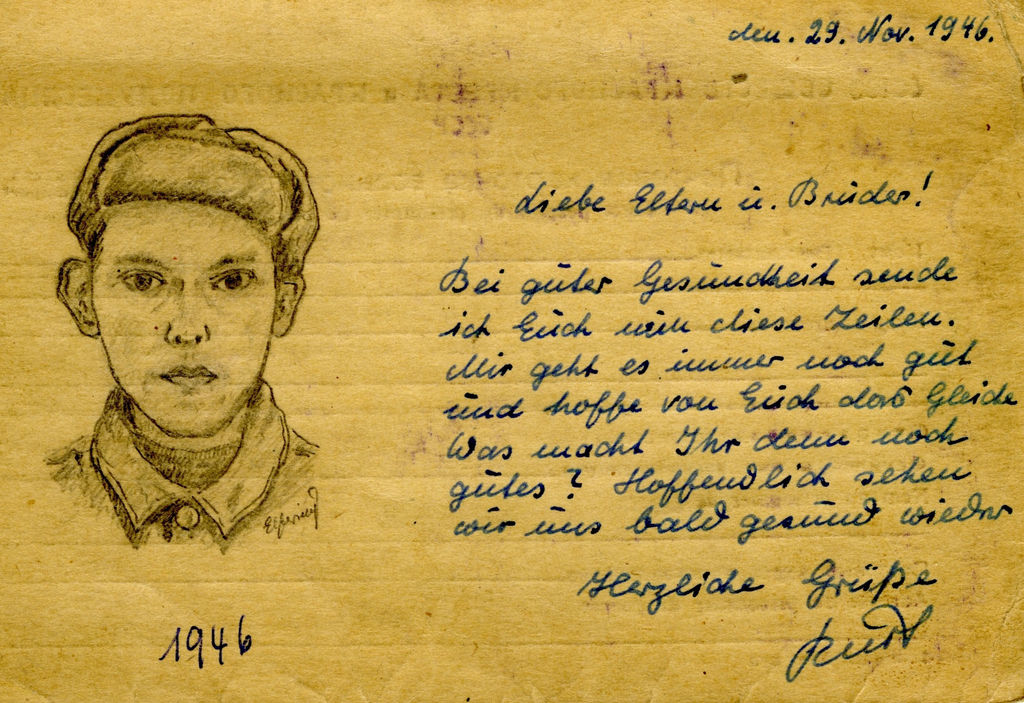 den. 29. Nov. 1946.
Liebe Eltern u. Bruder!
Bei guter Gesundheit sende
ich Euch nun diese Zeilen.
Mir geht es immer noch gut
und hoffe von Euch das Gleiche
Was macht Ihr denn noch
gutes? Hoffendlich sehen
wir uns bald gesund wieder
Herzliche Grüße
Kurt
1946